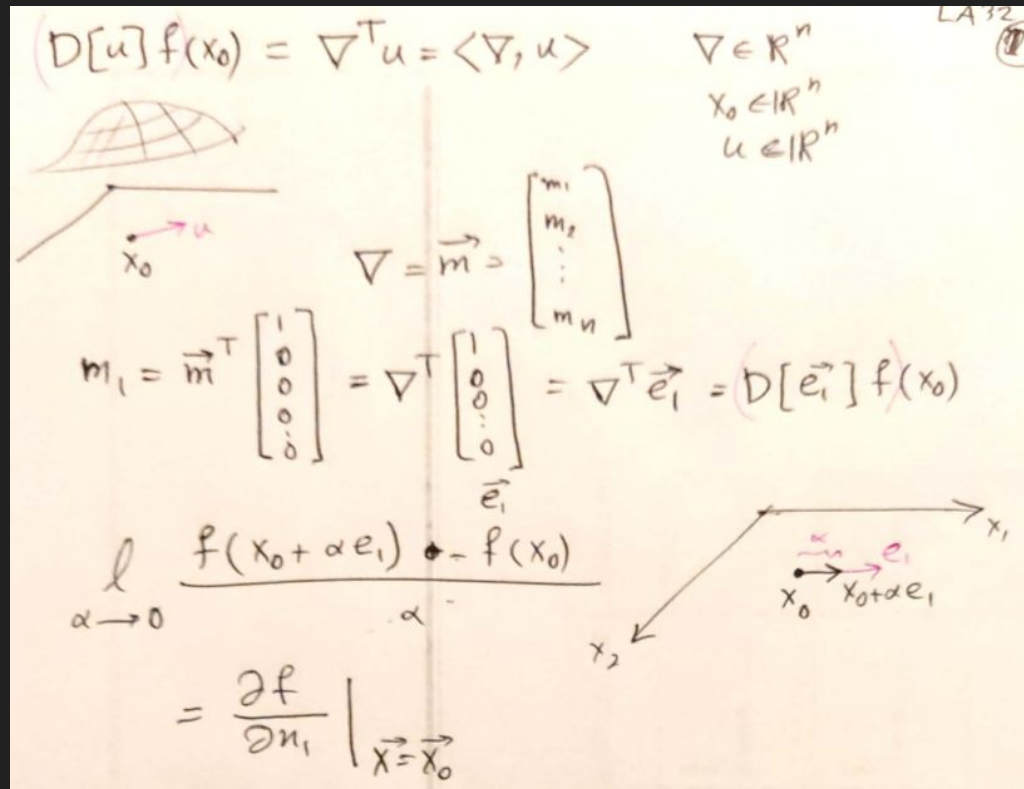 LA32
D[u] f(x₀) = ∇ᵀu = <∇, u>
∇ ∈ ℝⁿ
x₀ ∈ ℝⁿ
u ∈ ℝⁿ
u
x₀
∇ = m⃗ = [m₁ m₂ ⋮ mₙ]
m₁ = m⃗ᵀ [1 0 0 0 ⋮ 0] = ∇ᵀ [1 0 0 ⋮ 0] = ∇ᵀ e⃗₁ = D[e⃗₁] f(x₀)
e⃗₁
l α→0 f(x₀ + αe₁) - f(x₀) / α
x₁
α e₁
x₀ x₀+αe₁
x₂
= ∂f/∂x₁ | x⃗=x⃗₀